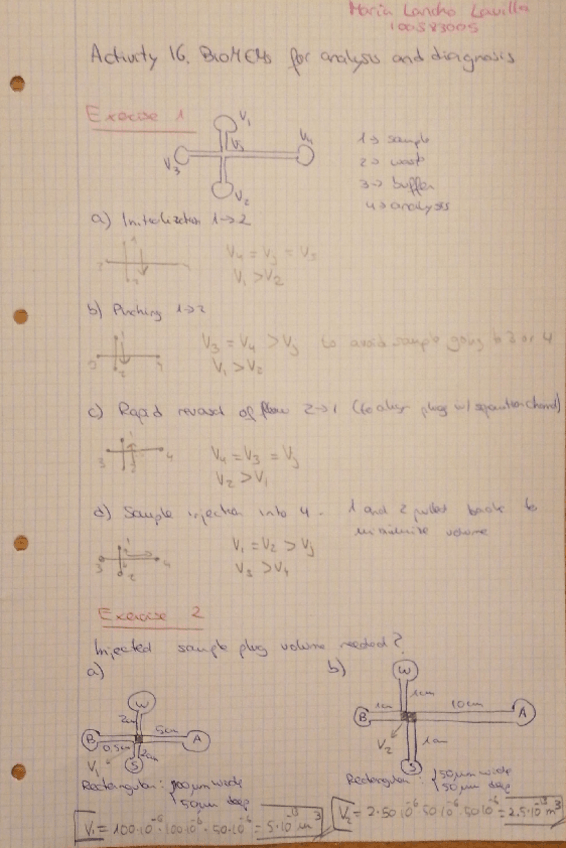 Maria Lancho Lavilla
100383005
Activity 16. BioMEMs for analysis and diagnosis
Exercise 1
V1
V3 VJ V4
V2
1 → sample
2 → wast
3 → buffer
4 → analysis
a) Initialization 1→2
V4 = VJ = V3
V1 > V2
b) Pinching 1→2
V3 = V4 > VJ to avoid sample going to 3 or 4
V1 > V2
c) Rapid reversal of flow 2→1 (to align plug w/ separation channel)
V4 = V3 = VJ
V2 > V1
d) Sample injection into 4 - 1 and 2 pulled back to
minimize volume
V1 = V2 > VJ
V3 > V4
Exercise 2
Injected sample plug volume needed?
a) b)
W
2cm 5cm
B A
0,5cm 2cm
V1 S
W
1cm 1cm 10cm
B A
V2 1cm
S
Rectangular: 100µm wide
50µm deep
Rectangular: 50µm wide
50µm deep
V1 = 100·10⁻⁶·100·10⁻⁶·50·10⁻⁶ = 5·10⁻¹³ m³
V2 = 2·50·10⁻⁶·50·10⁻⁶·50·10⁻⁶ = 2.5·10⁻¹³ m³